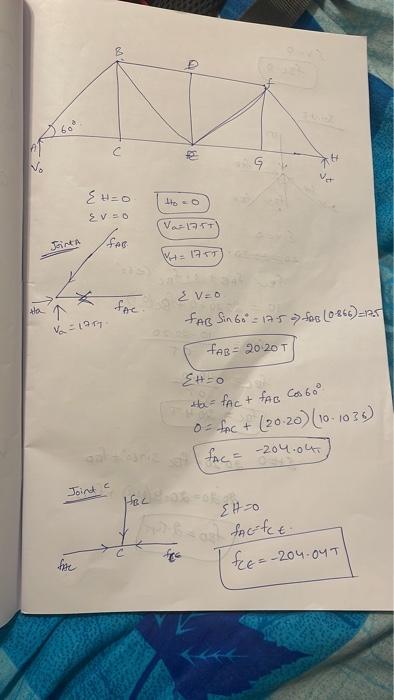 B
D
f
60°
A
C
E
G
H
Vo
VH
Σ H=0
Ho = 0
Σ V=0
Va=17.5T
VH = 17.5T
Joint A
fAB
Ha
fAC
Va = 17.5T
Σ V=0
fAB Sin60° = 17.5 ⇒ fAB (0.866)=17.5
fAB = 20.20T
ΣH=0
Ha = fAC + fAB Cos60°
0 = fAC + (20.20)(10.1036)
fAC = -204.04T
Joint C
fBC
C
fAC
fCE
ΣH=0
fAC=fCE.
fCE=-204.04T